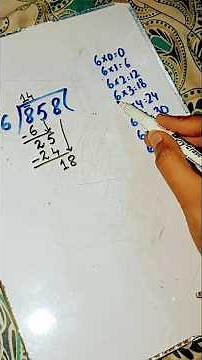 14
6 858
6
25
-24
18
6x0=0
6x1=6
6x2=12
6x3=18
4=24
30
6
6